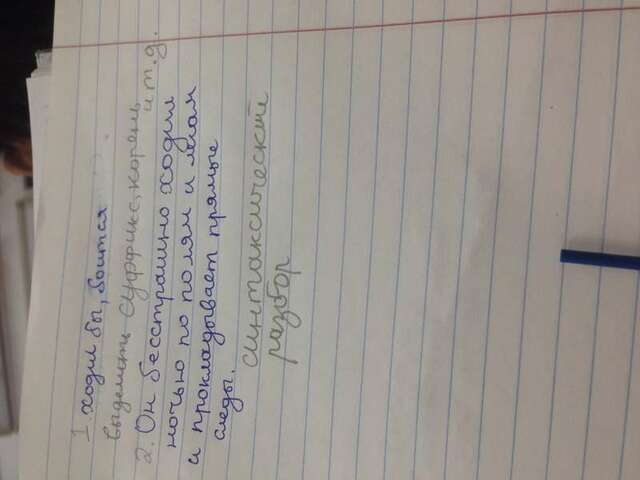 1. ходил бы, боится
выделить суффикс, корень
и т. д.
2. Он бесстрашно ходил
ночью по полям и лесам
и прокладывает прямые
следы.
синтаксический
разбор